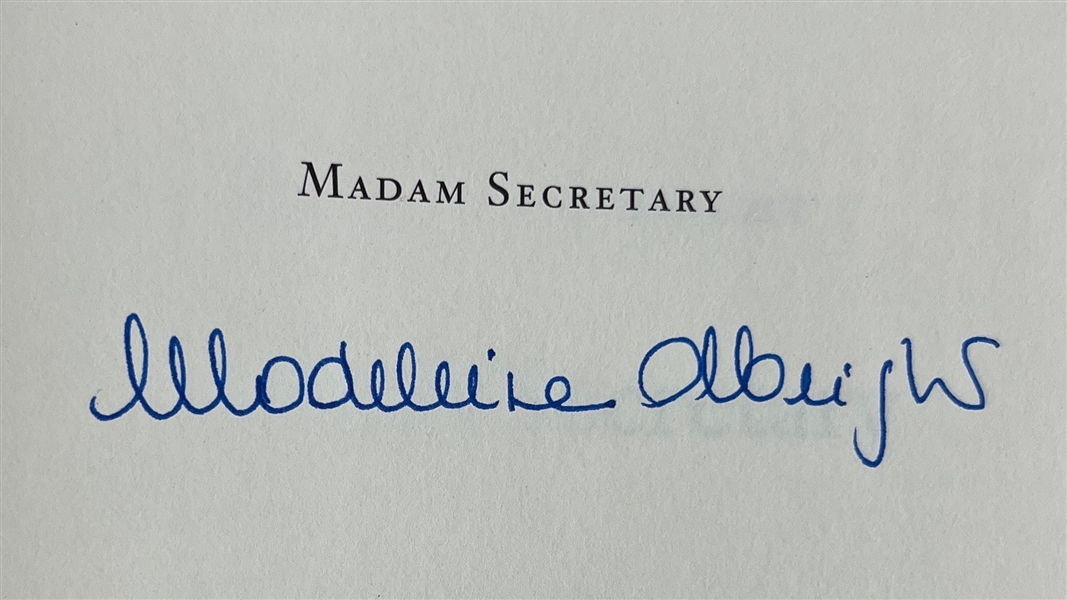 MADAM SECRETARY
Madeleine Albright